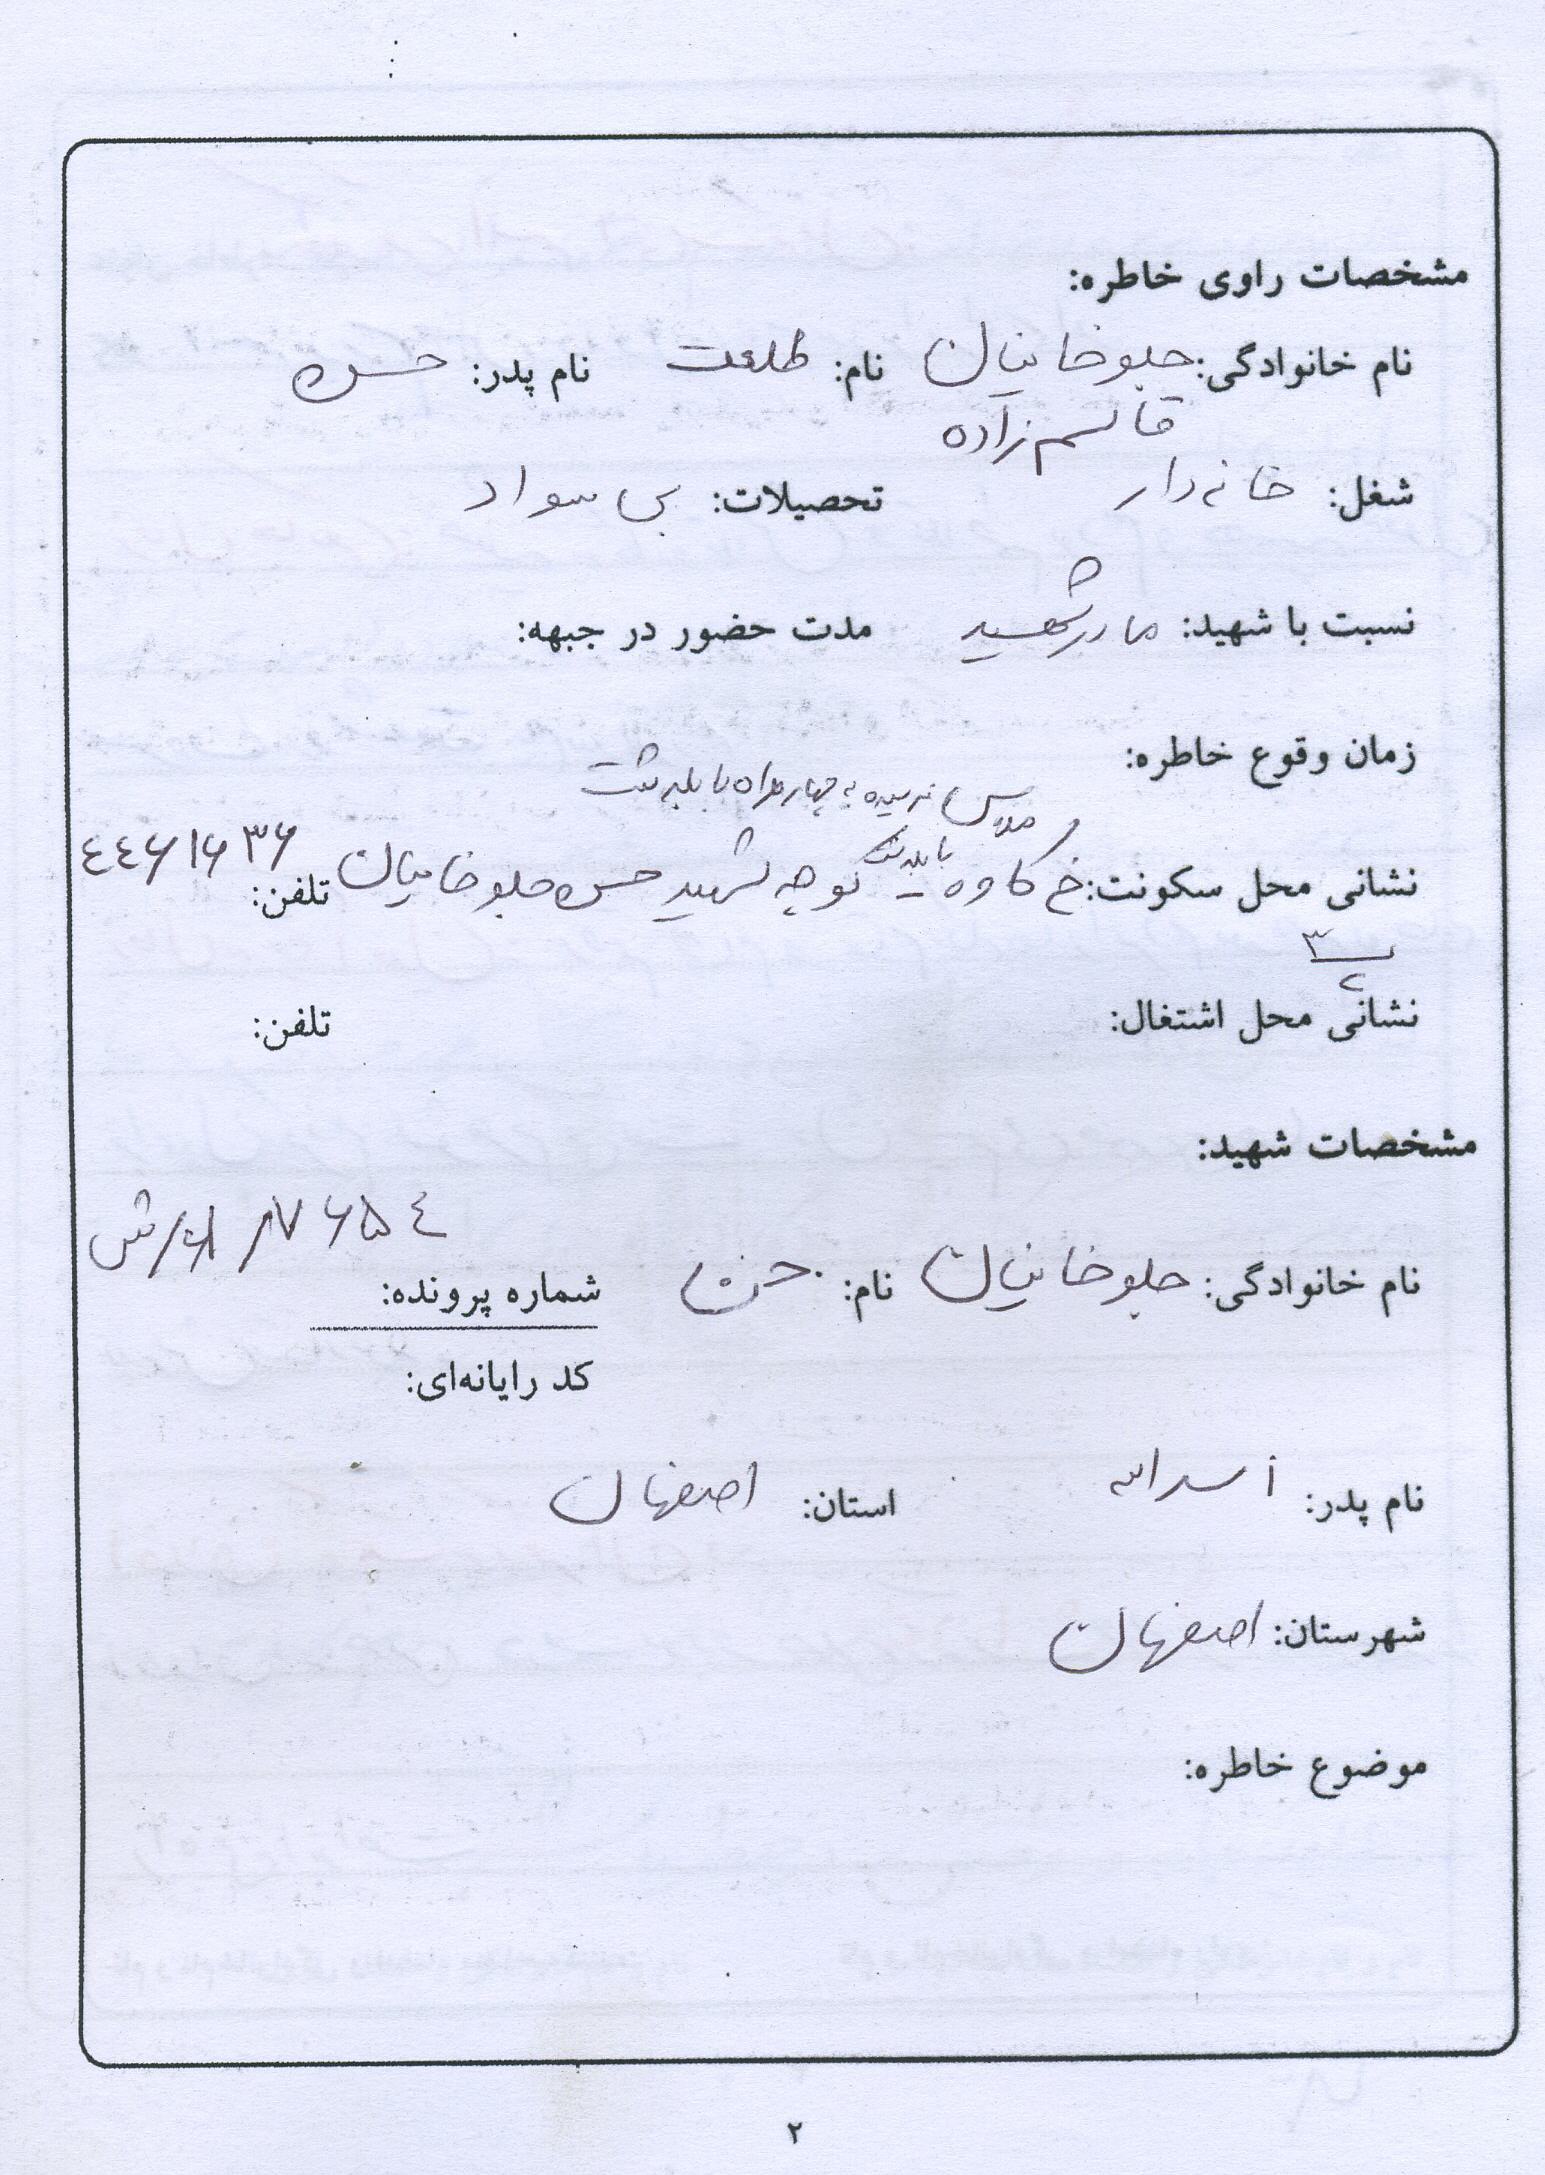 مشخصات راوی خاطره:
نام خانوادگی: جلوخانیان نام: طلعت نام پدر: حسن
قاسم زاده
شغل: خانه دار تحصیلات: بی سواد
نسبت با شهید: مادر شهید مدت حضور در جبهه:
زمان وقوع خاطره:
مدرس نرسیده به چهارراه تابلدشت
نشانی محل سکونت: خ کاوه - کوچه شهید حسن جلوخانیان تلفن: ٤٤۶۱۶۳۶
پ ۳
نشانی محل اشتغال: تلفن:
مشخصات شهید:
نام خانوادگی: جلوخانیان نام: حسن شماره پرونده:
کد رایانه‌ای:
نام پدر: اسداله استان: اصفهان
شهرستان: اصفهان
موضوع خاطره:
۲